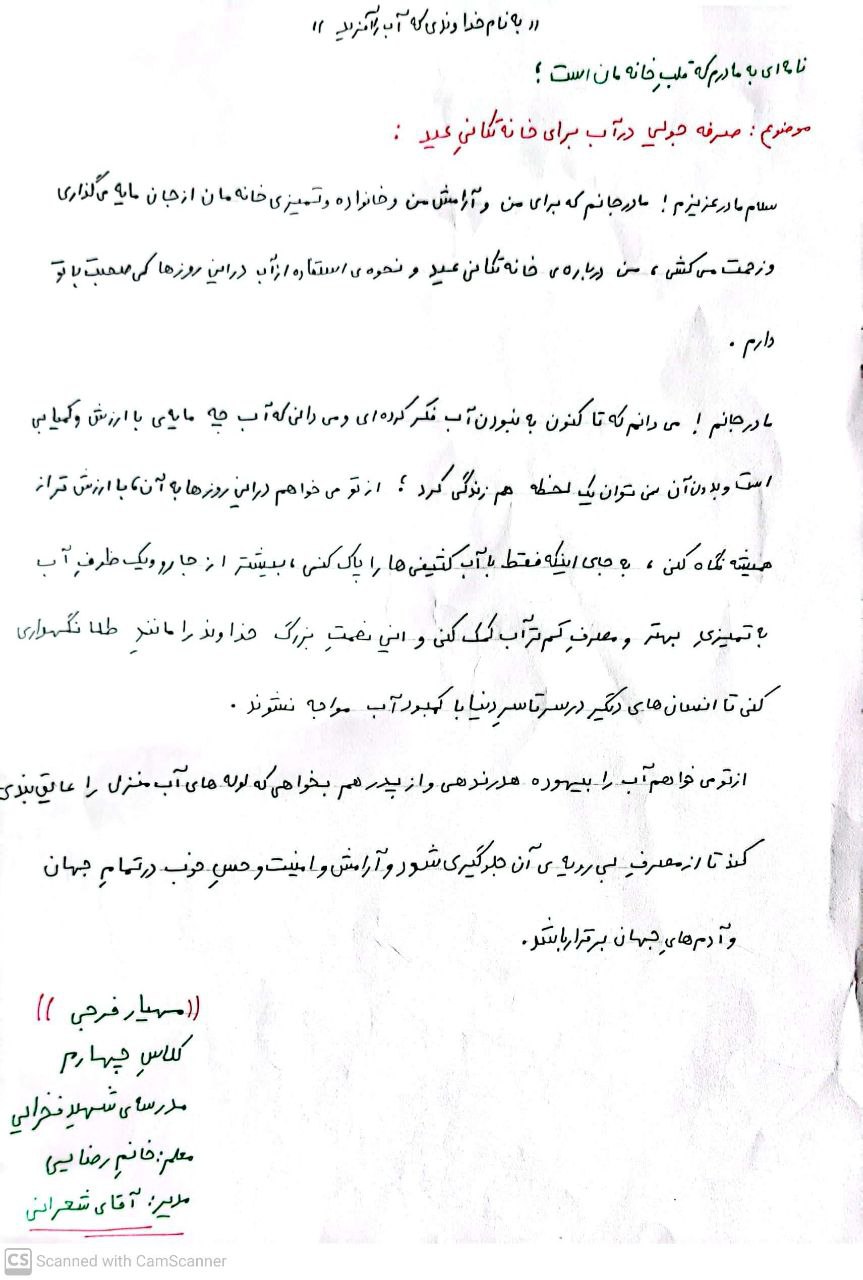 «به نام خداوندی که آب را آفرید»
نامه‌ای به مادرم که قلبِ خانه مان است ؛
موضوع : صرفه جویی در آب برای خانه تکانیِ عید :
سلام مادر عزیزم ! مادر جانم که برای من و آرامش من و خانواده و تمیزی خانه مان از جان مایه می‌گذاری
و زحمت می کشی ، من درباره ی خانه تکانی عید و نحوه ی استفاده از آب در این روزها کمی صحبت با تو
دارم .
مادر جانم ! می دانم که تا کنون به نبودن آب فکر کرده ای و می دانی که آب چه مایه ی با ارزش و کمیابی
است و بدون آن نمی توان یک لحظه هم زندگی کرد ؛ از تو می خواهم در این روزها به آن، با ارزش تر از
همیشه نگاه کنی ، به جای اینکه فقط با آب کثیفی ها را پاک کنی ، بیشتر از جارو و یک ظرفِ آب
به تمیزیِ بهتر و مصرفِ کم ترِ آب کمک کنی و این نعمتِ بزرگ خداوند را مانندِ طلا نگهداری
کنی تا انسان های دیگر در سرتاسرِ دنیا با کمبود آب مواجه نشوند .
از تو می خواهم آب را بیهوده هدر ندهی و از پدر هم بخواهی که لوله های آب منزل را عایق بندی
کند تا از مصرفِ بی رویه ی آن جلوگیری شود و آرامش و امنیت و حسِ خوب در تمامِ جهان
و آدم هایِ جهان برقرار باشد.
((مهیار فرجی ))
کلاسِ چهارم
مدرسه‌ی شهید فخرایی
معلم: خانمِ رضایی
مدیر: آقای شعرانی
CS Scanned with CamScanner